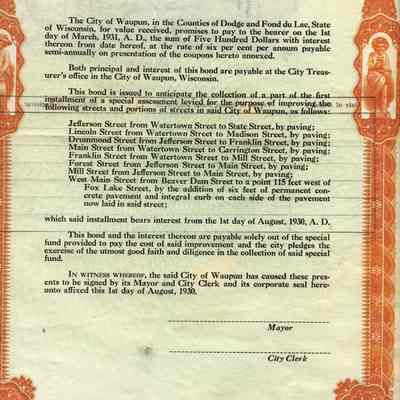 The City of Waupun, in the Counties of Dodge and Fond du Lac, State
of Wisconsin, for value received, promises to pay to the bearer on the 1st
day of March, 1931, A. D., the sum of Five Hundred Dollars with interest
thereon from date hereof, at the rate of six per cent per annum payable
semi-annually on presentation of the coupons hereto annexed.
Both principal and interest of this bond are payable at the City Treas-
urer's office in the City of Waupun, Wisconsin.
This bond is issued to anticipate the collection of a part of the first
installment of a special assessment levied for the purpose of improving the
following streets and portions of streets in said City of Waupun, as follows:
Jefferson Street from Watertown Street to State Street, by paving;
Lincoln Street from Watertown Street to Madison Street, by paving;
Drummond Street from Jefferson Street to Franklin Street, by paving;
Main Street from Watertown Street to Carrington Street, by paving;
Franklin Street from Watertown Street to Mill Street, by paving;
Forest Street from Jefferson Street to Main Street, by paving;
Mill Street from Jefferson Street to Main Street, by paving;
West Main Street from Beaver Dam Street to a point 115 feet west of
Fox Lake Street, by the addition of six feet of permanent con-
crete pavement and integral curb on each side of the pavement
now laid in said street;
which said installment bears interest from the 1st day of August, 1930, A. D.
This bond and the interest thereon are payable solely out of the special
fund provided to pay the cost of said improvement and the city pledges the
exercise of the utmost good faith and diligence in the collection of said special
fund.
IN WITNESS WHEREOF, the said City of Waupun has caused these pres-
ents to be signed by its Mayor and City Clerk and its corporate seal here-
unto affixed this 1st day of August, 1930.
Mayor
City Clerk